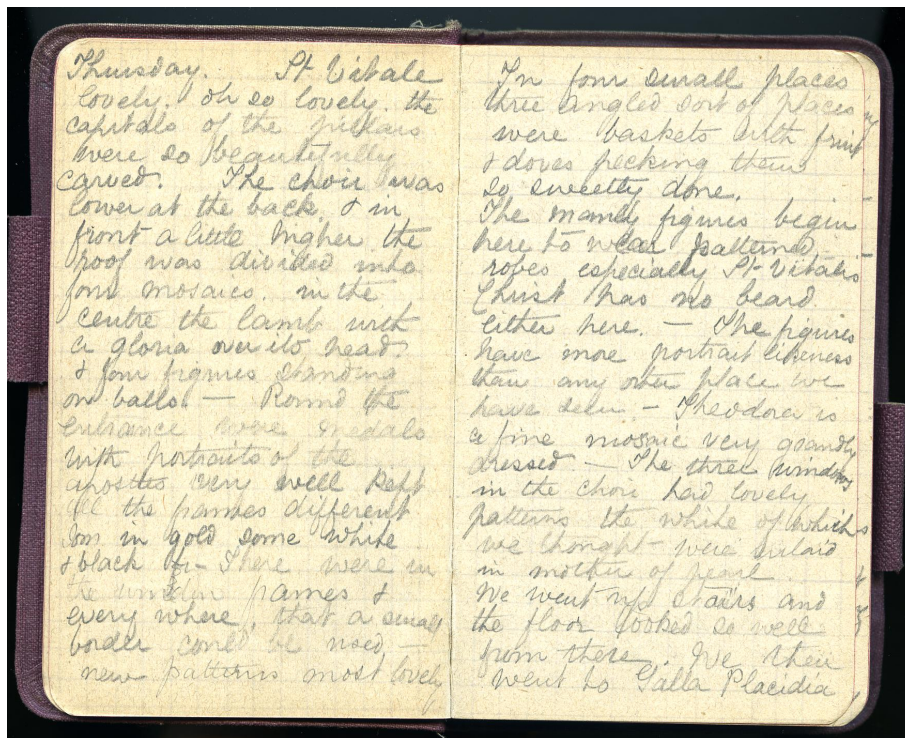 Thursday. St Vitale
lovely. oh so lovely. the
capitals of the pillars
were so beautifully
carved. The choir was
lower at the back. & in
front a little higher the
roof was divided into
four mosaics. in the
centre the lamb with
a gloria over its head.
& four figures standing
on balls. — Round the
entrance were medals
with portraits of the
apostles very well kept
all the frames different
som in gold some white
& black &c — There were in
the window frames &
every where, that a small
border could be used —
new patterns most lovely
In four small places
three angled sort of places
were baskets with fruit
& doves pecking them
so sweetly done.
The manly figures begin
here to wear patterned
robes especially St Vitalis
Christ has no beard
either here. — The figures
have more portrait likeness
than any other place we
have seen — Theodora is
a fine mosaic very grandly
dressed — The three windows
in the choir had lovely
patterns the white of which
we thought were inlaid
in mother of pearl
We went up stairs and
the floor looked so well
from there. We then
went to Galla Placidia